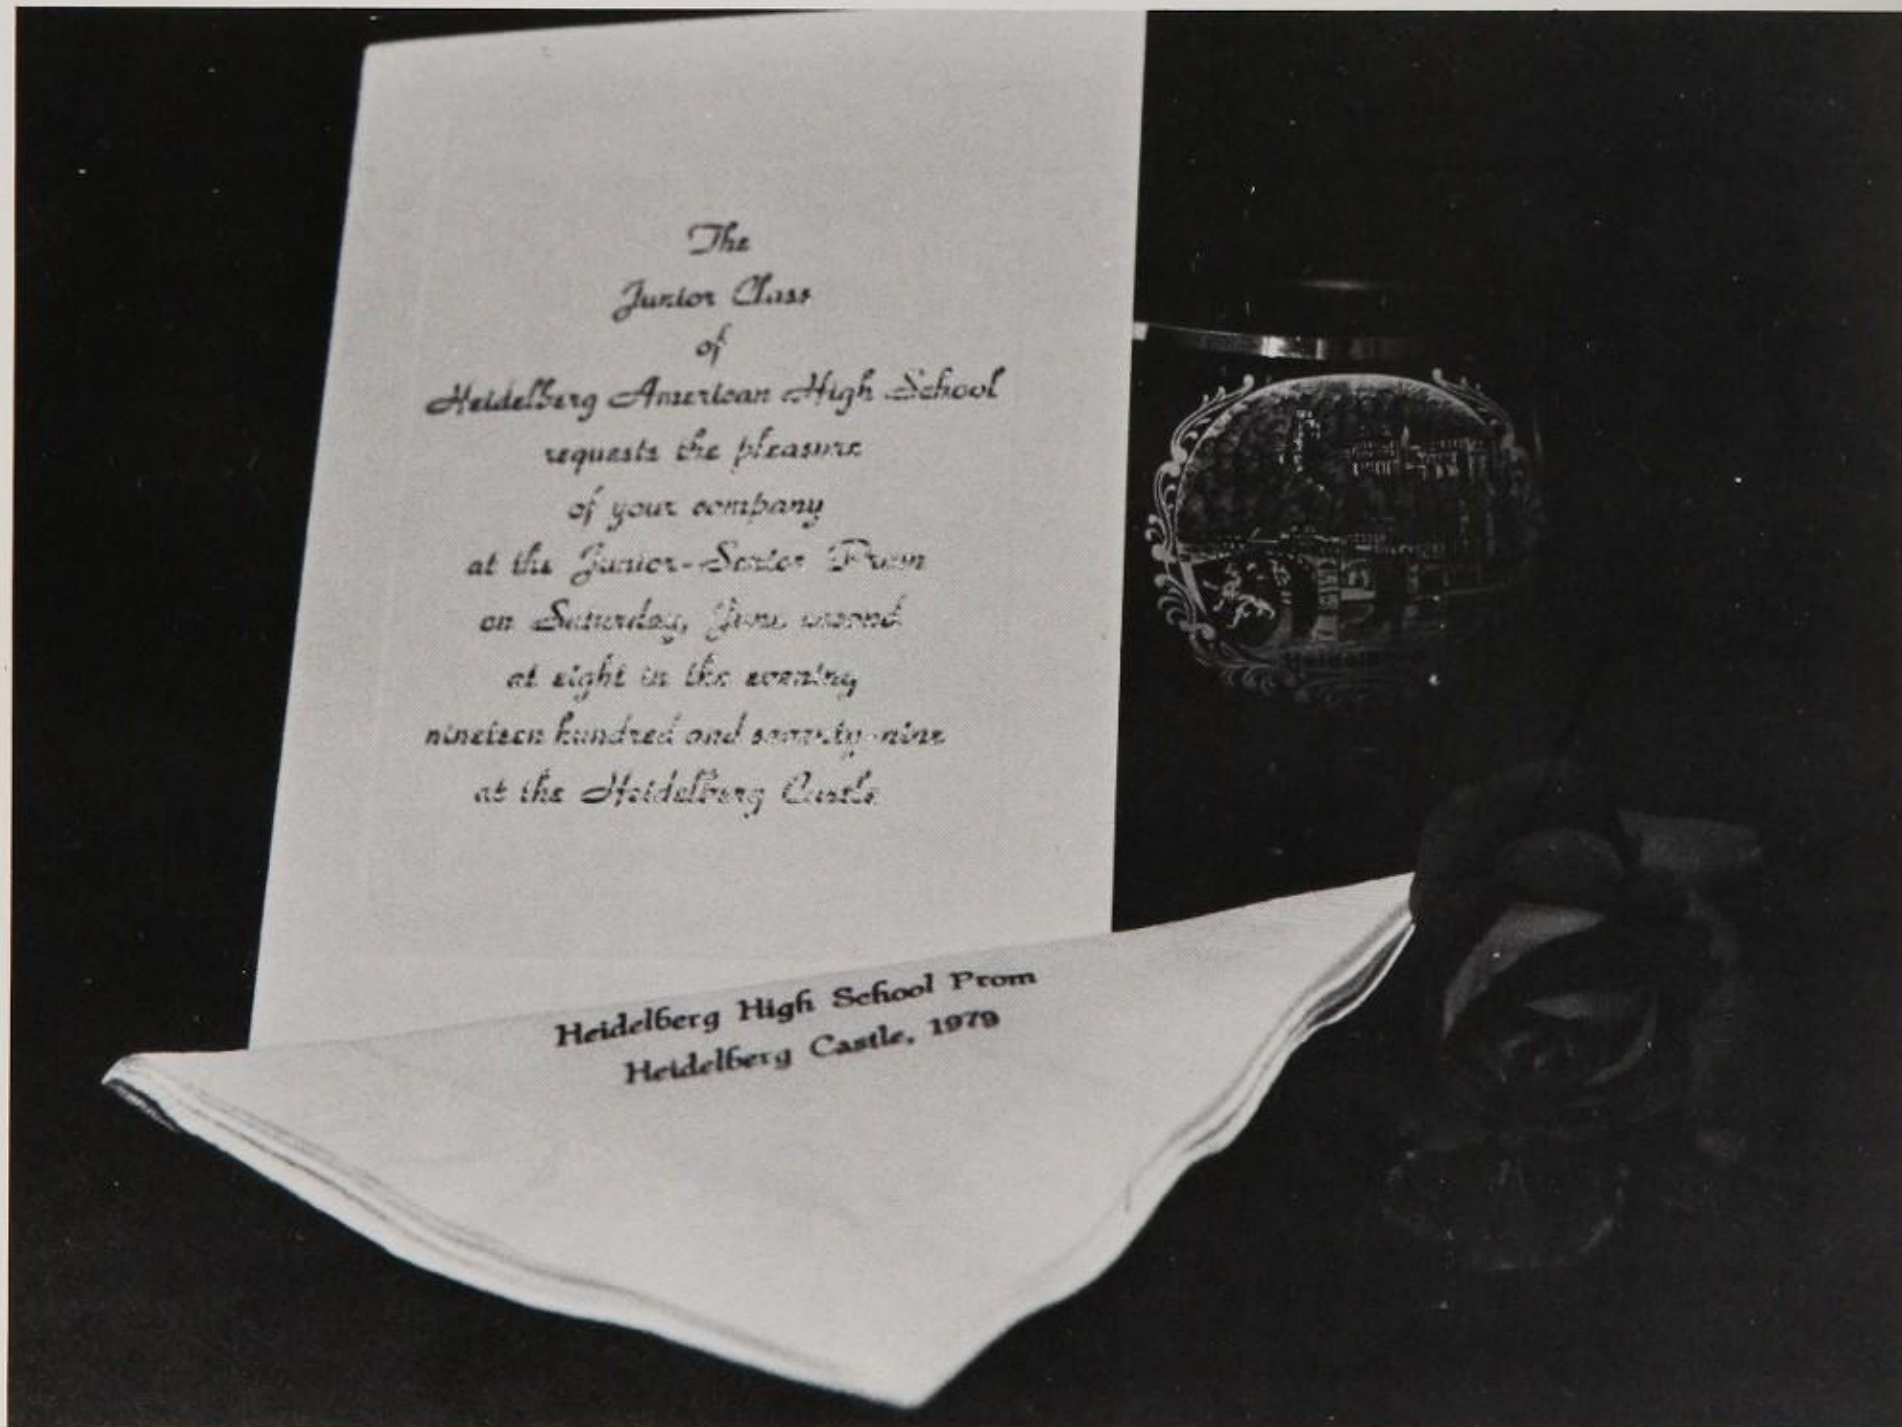 The
Junior Class
of
Heidelberg American High School
requests the pleasure
of your company
at the Junior-Senior Prom
on Saturday, June second
at eight in the evening
nineteen hundred and seventy-nine
at the Heidelberg Castle
Heidelberg
Heidelberg High School Prom
Heidelberg Castle, 1979